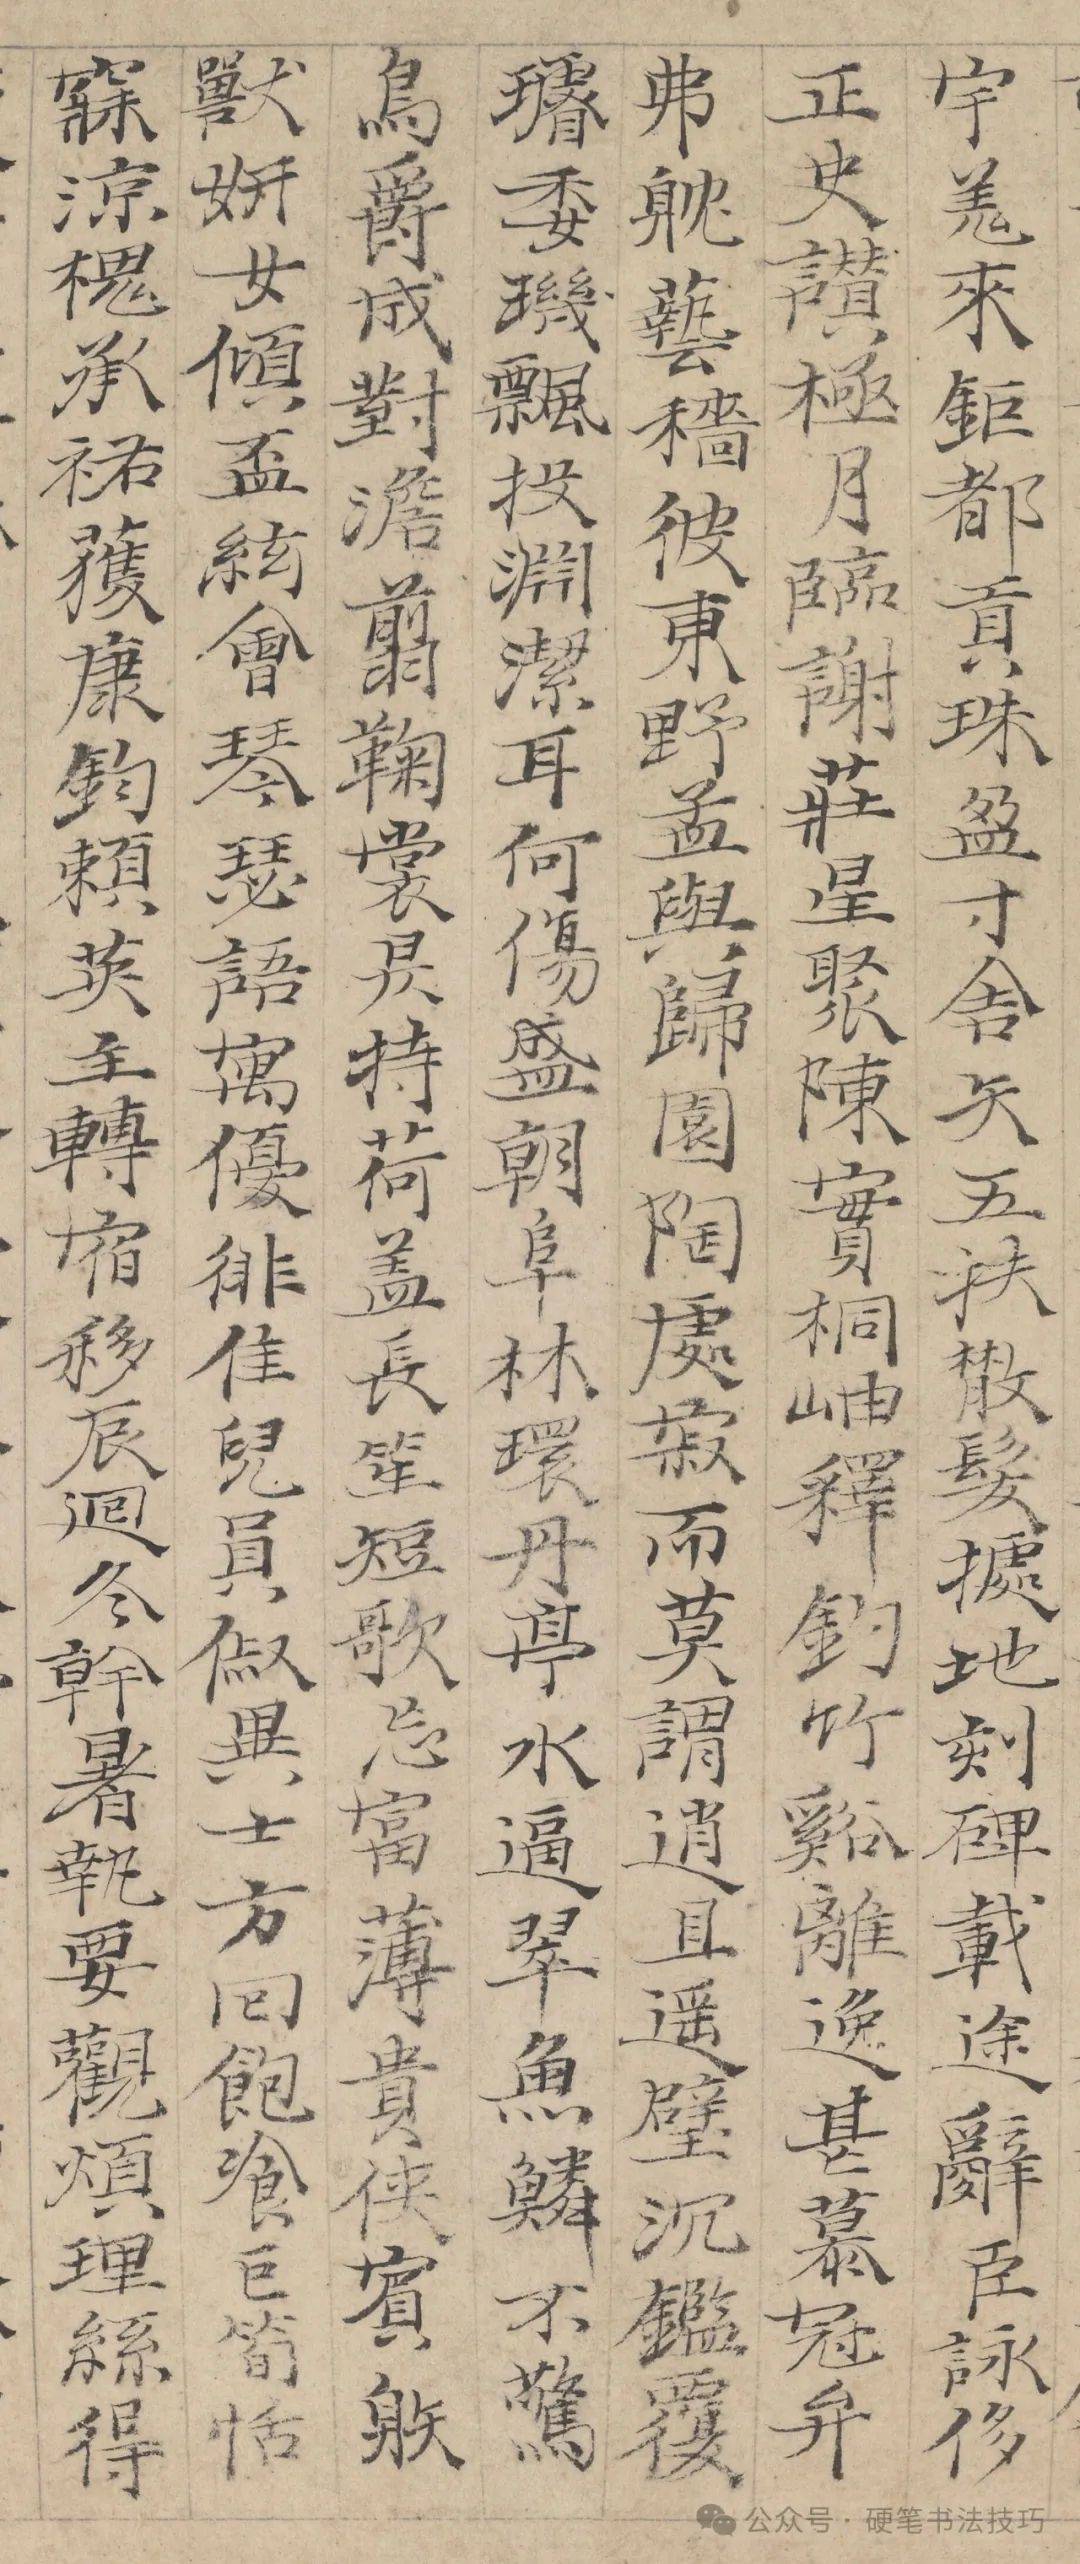 宇羌來鉅都貢珠盈寸舍矢五扶散髮據地刻碑載途辭臣詠侈
正史讃極月臨謝莊星聚陳實桐岫釋釣竹谿離逸甚慕冠弁
弗躭藝穡彼東野孟與歸園陶處寂而莫謂逍且遥壁沉鑑覆
璿委璣飄投淵潔耳何傷盛朝阜林環丹亭水逼翠魚鱗不驚
鳥爵成對澹翦鞠裳昃持荷盖長笙短歌忘富薄貴俠賓敗
獸妍女傾盃絃會琴瑟語寓優俳佳兒員俶異士方回飽飡巨筍恬
寐凉槐承祐獲康鈞賴英主轉宿移辰迴冬幹暑執要觀煩理絲得
公众号·硬笔书法技巧